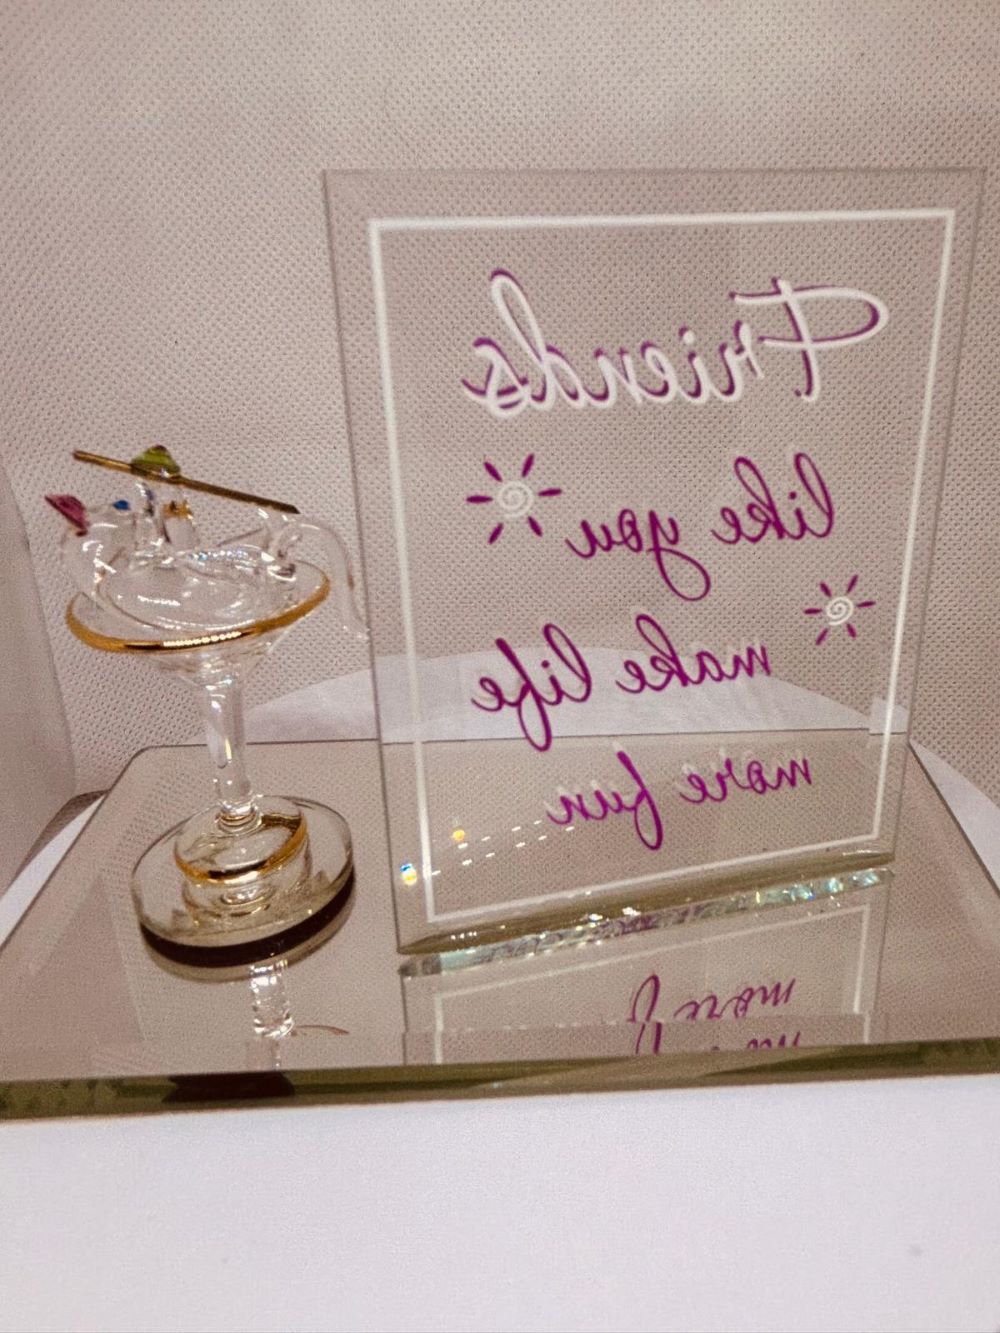 Friends
like you
make life
more fun